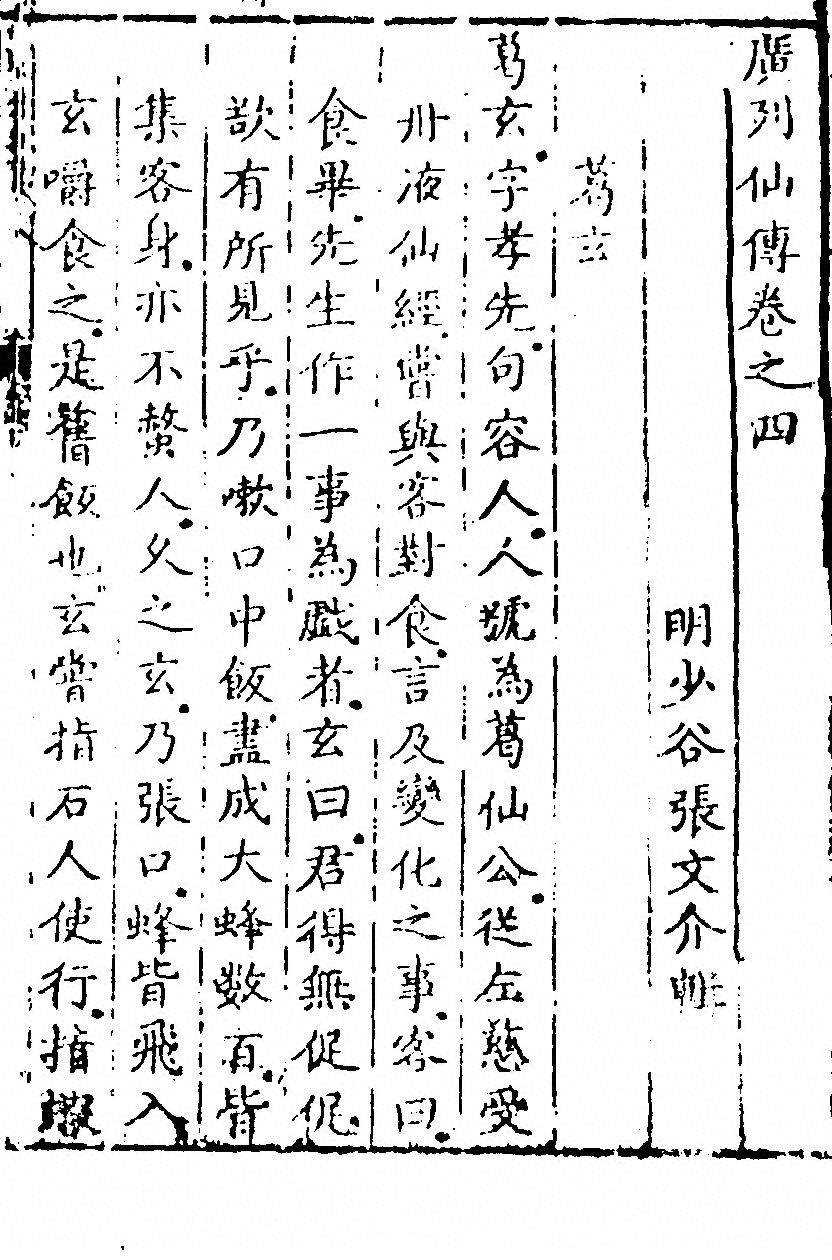 廣列仙傳卷之四
明少谷張文介輯
葛玄
葛玄字孝先句容人人號為葛仙公從左慈受
丹液仙經嘗與客對食言及變化之事客曰
食畢先生作一事為戲者玄曰君得無促促
欲有所見乎乃嗽口中飯盡成大蜂數百皆
集客身亦不螫人久之玄乃張口蜂皆飛入
玄嚼食之是舊飯也玄嘗指石人使行指蝦